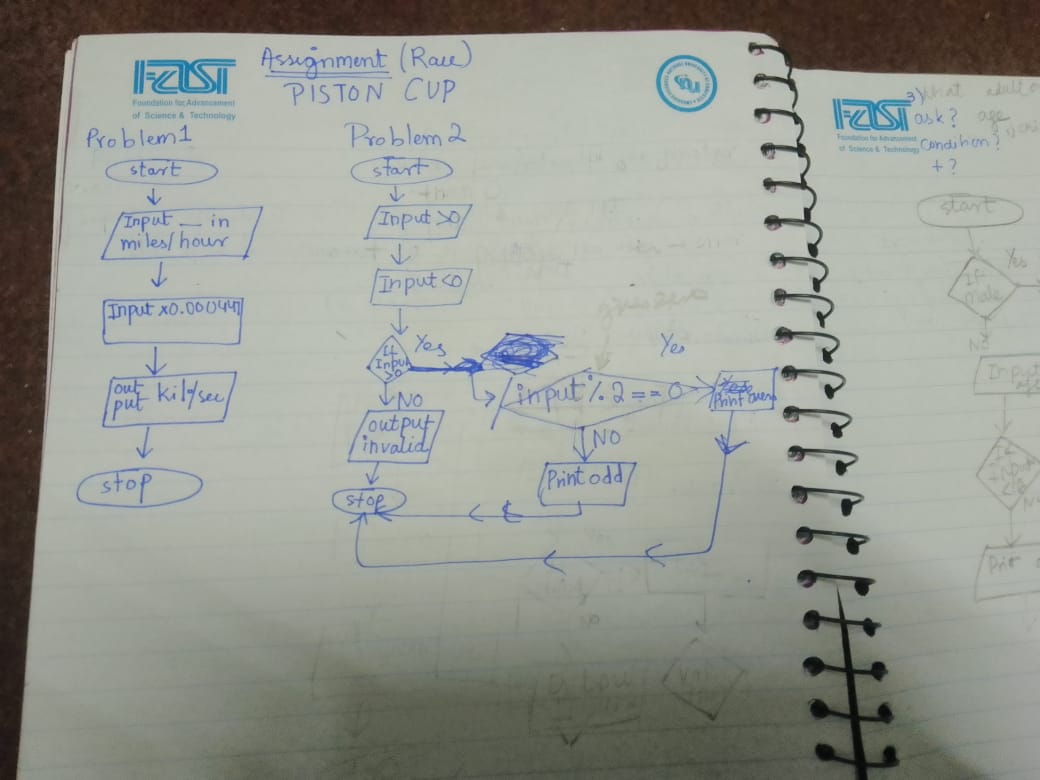 Assignment (Race)
PISTON CUP
FAST
Foundation for Advancement
of Science & Technology
Problem 1
start
Input — in
miles/hour
Input x0.000447
out put kilo/sec
stop
Problem 2
start
Input >0
Input <0
If
Input
>0
Yes
NO
output
invalid
stop
input % 2 == 0
Yes
Print even
NO
Print odd
FAST
Foundation for Advancement
of Science & Technology
3) What adult
ask? age
condition?
+ ?
start
If
male
Yes
No
Input
If
Input
Print